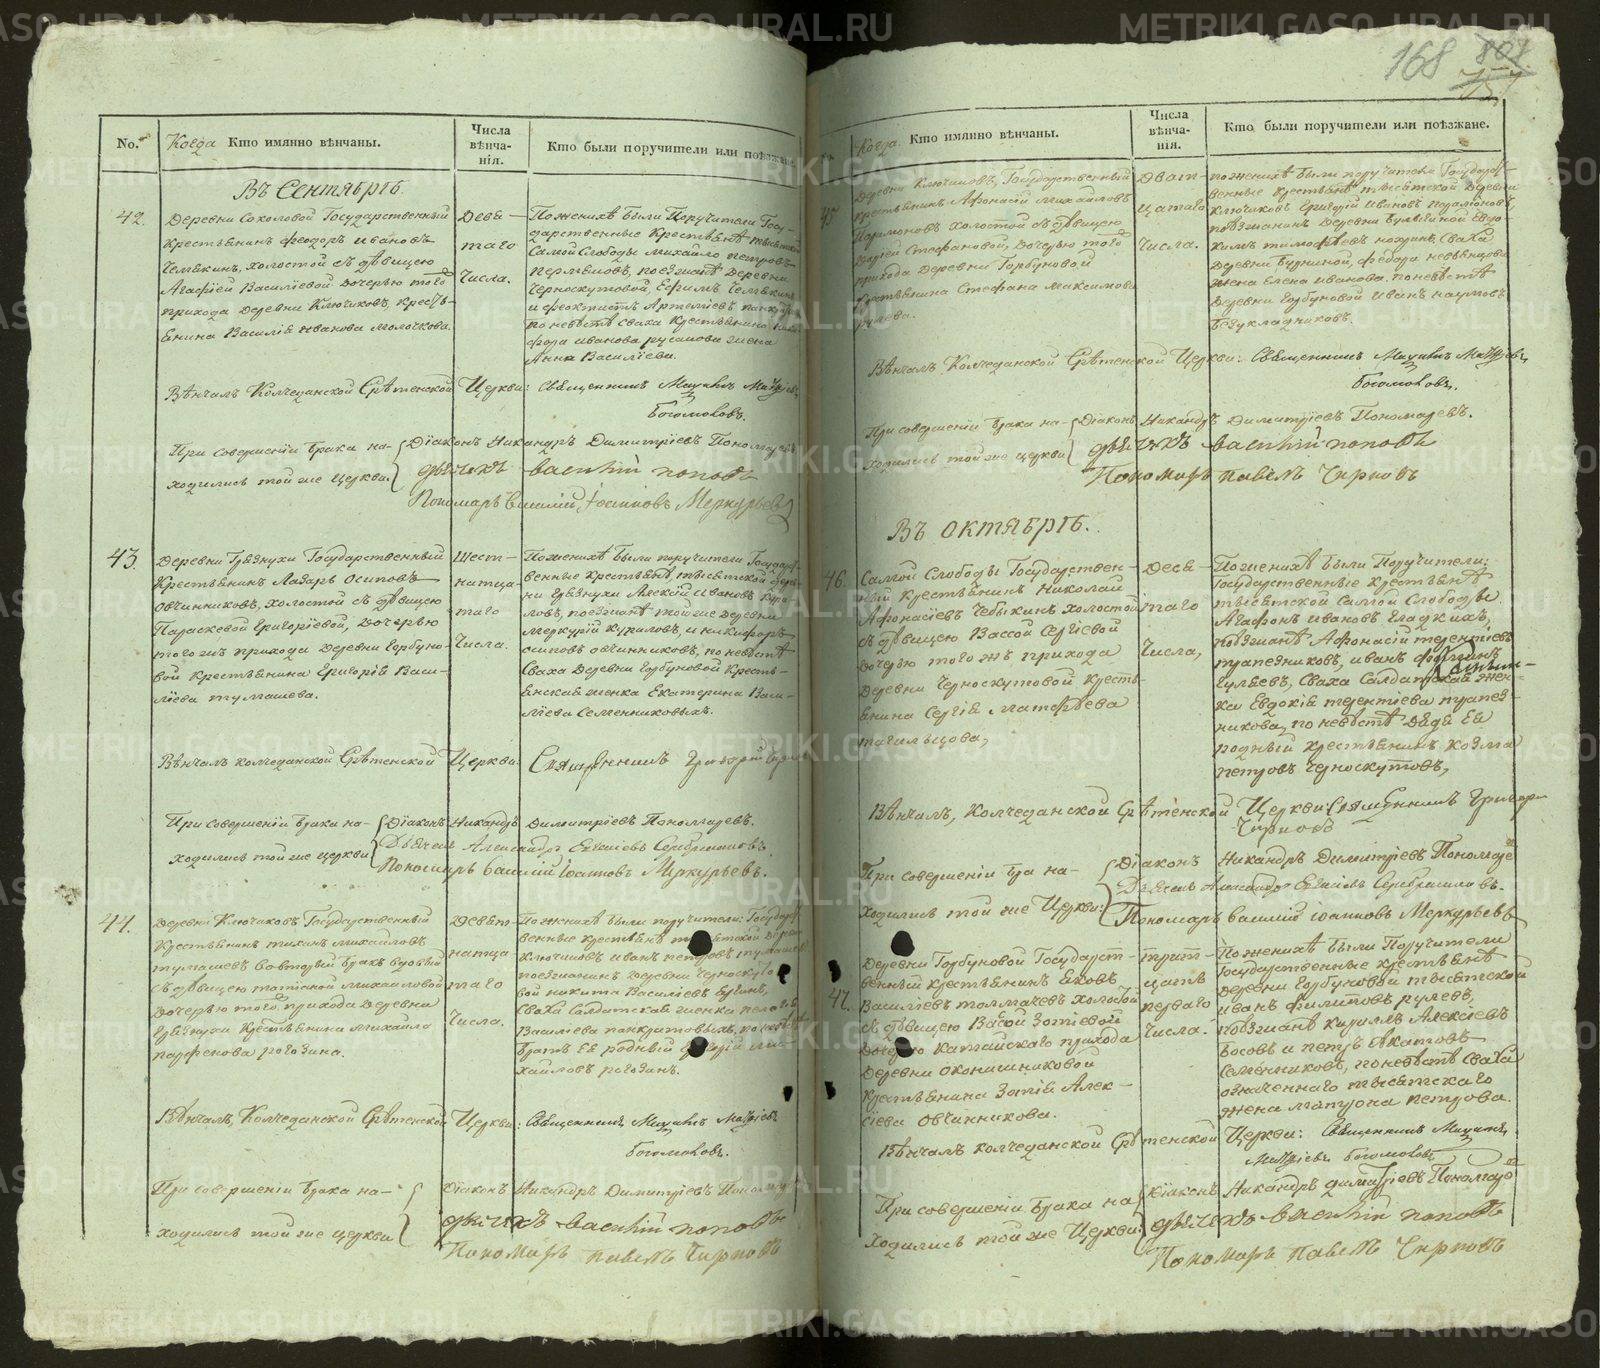 168 807
No. Когда Кто имянно вѣнчаны. Числа вѣнчанія. Кто были поручители или поѣзжане.
Въ Сентябрѣ.
42.
Деревни Соколовой Государственный
Крестьянинъ Феодоръ Ивановъ
холостой съ дѣвицею
Агафіей Василіевой дочерью того
прихода Деревни Ключиковъ, кресть-
янина Василія Иванова Молочкова.
Девя-
таго
Числа.
По женихѣ были Поручители Госу-
дарственные Крестьянѣ тысятской
Самой Слободы Михайло Петровъ
поезжанѣ Деревни
Черноскутовой Ефимъ
и Феоктистъ Артеміевъ
по невѣстѣ сваха Крестьянина
Иванова русанова жена
Анна Василіева.
Вѣнчалъ Колчеданской Срѣтенской Церкви: Священникъ Михаилъ Матѳіевъ
Богомоловъ.
При совершеніи брака на- Діаконъ Никандръ Димитріевъ Пономаревъ
ходились той же церкви Дьячекъ Василій Поповъ
Пономарь Василій Іоанновъ Меркурьевъ
43.
Деревни Грязнухи Государственный
Крестьянинъ Лазарь Осиповъ
Овчинниковъ, холостой съ дѣвицею
Параскевой Григоріевой, дочерью
того жъ прихода Деревни Горбуно-
вой Крестьянина Григорія Васи-
лієва тумашева.
Шест-
натца-
таго
Числа.
По женихѣ были поручители Государ-
венные крестьянѣ, тысятской дерев-
ни Грязнухи Алексей Ивановъ
поезжанѣ той же деревни
Меркурій Куриловъ, и Никифоръ
Осиповъ Овчинниковъ, по невѣстѣ
Сваха Деревни Горбуновой Кресть-
янская женка Екатерина Васи-
ліева Семенниковыхъ.
Вѣнчалъ Колчеданской Срѣтенской Церкви: Священникъ Григорій
При совершеніи брака на- Діаконъ Никандръ Димитріевъ Пономаревъ.
ходились той же церкви Дьячекъ Александръ Серебрениковъ.
Пономарь Василій Іоанновъ Меркурьевъ.
44.
Деревни Ключиковъ Государственный
Крестьянинъ Тихонъ Михайловъ
тумашевъ вовторый бракъ вдовый
съ дѣвицею Татіаной Михайловой
дочерью того прихода Деревни
Грязнухи Крестьянина Михайла
парфенова рогозина.
Девят-
натца
таго
Числа.
По женихѣ были поручители: Государ-
венные крестьянѣ
Ключиковъ Иванъ Петровъ тумашевъ
поезжанинъ Деревни Черноскуто-
вой Никита Василіевъ
Сваха Салдатская женка
Василіева панкратовыхъ, по невѣстѣ
Братъ Ея родный Ми-
хайловъ рогозинъ.
Вѣнчалъ, Колчеданской Срѣтенской Церкви: Священникъ Михаилъ Матѳіевъ
Богомоловъ.
При совершеніи брака на- Діаконъ Никандръ Димитріевъ
ходились той же церкви Дьячекъ Василій Поповъ
Пономарь Павелъ Чирковъ
Когда Кто имянно вѣнчаны. Числа вѣнчанія. Кто были поручители или поѣзжане.
45
Деревни Ключиковъ, Государственный
крестьянинъ Афонасій Михайловъ
Парамоновъ холостой съ дѣвицею
Стефановой, дочерью того
прихода Деревни Горбуновой
Крестьянина Стефана Максимова
рулева.
Дват-
цатаго
Числа.
по женихѣ были поручители Государст-
венные Крестьянѣ тысятской Деревни
Ключиковъ Григорій Ивановъ
поѣзжанинъ Деревни
Сваха
жена Елена Иванова, по невѣстѣ
Деревни Горбуновой Иванъ Наумовъ
Безукладниковъ.
Вѣнчалъ Колчеданской Срѣтенской Церкви: Священникъ Михаилъ Матѳіевъ
Богомоловъ.
При совершеніи брака на- Діаконъ Никандръ Димитріевъ Пономаревъ.
ходились той же церкви Дьячекъ Василій Поповъ
Пономарь Павелъ Чирковъ
Въ Октябрѣ.
46.
Самой Слободы Государствен-
ный Крестьянинъ Николай
Афонасіевъ Чебыкинъ холостой
съ дѣвицею Вассой Сергіевой
дочерью того жъ прихода
Деревни Черноскутовой Кресть-
янина Сергія Матфѣева
тагильцова,
Деся-
таго
Числа,
По женихѣ были Поручители:
Государственные Крестьянѣ
тысятской Самой Слободы
Агафонъ Ивановъ Гладкихъ,
поѣзжанѣ Афонасій терентіевъ
трапезниковъ, Иванъ
Гуляевъ, Сваха Салдатская жен-
ка Евдокія терентіева трапез-
никова, по невѣстѣ дядя Ея
родный крестьянинъ Козма
Петровъ Черноскутовъ,
Вѣнчалъ, Колчеданской Срѣтенской Церкви: Священникъ Григорій
Чирковъ
При совершеніи бра на- Діаконъ Никандръ Димитріевъ
ходились той же Церкви: Дьячекъ Александръ Серебрениковъ.
Пономарь Василій Іоанновъ Меркурьевъ
47.
Деревни Горбуновой Государст-
венный крестьянинъ Яковъ
Василіевъ толмачевъ холостой
съ дѣвицею Васой Зотіевой
дочерью Катайскаго прихода
Деревни Оконишниковой
Крестьянина Зотія Алек-
сіева Овчинникова.
трит-
цать
перваго
Числа.
По женихѣ были Поручители
Государственные крестьянѣ
Деревни Горбуновой тысятской
Иванъ Филиповъ рулевъ,
поѣзжанѣ Кирилъ Алексіевъ
Босовъ и Петръ
Семенниковъ, по невѣстѣ Сваха
означеннаго тысятскаго
жена Матрона Петрова.
Вѣнчалъ Колчеданской Срѣтенской Церкви: Священникъ Михаилъ
Матѳіевъ Богомоловъ
При совершеніи брака на Діаконъ Никандръ Димитріевъ
ходились той же Церкви: Дьячекъ Василій Поповъ
Пономарь Павелъ Чирковъ
METRIKI.GASO-URAL.RU